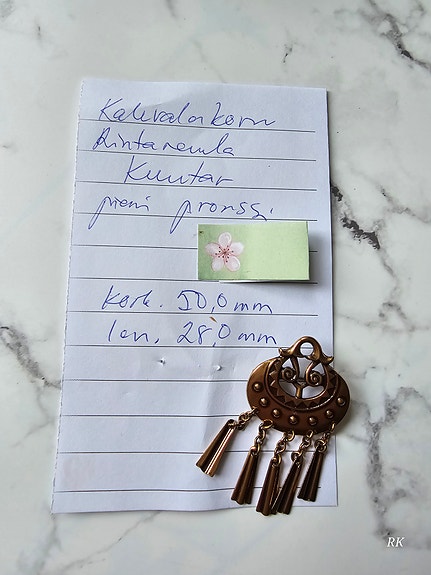 Kalevala koru
Rintaneula
Kuutar
pieni pronssi
kork. 50,0 mm
lev. 28,0 mm
RK